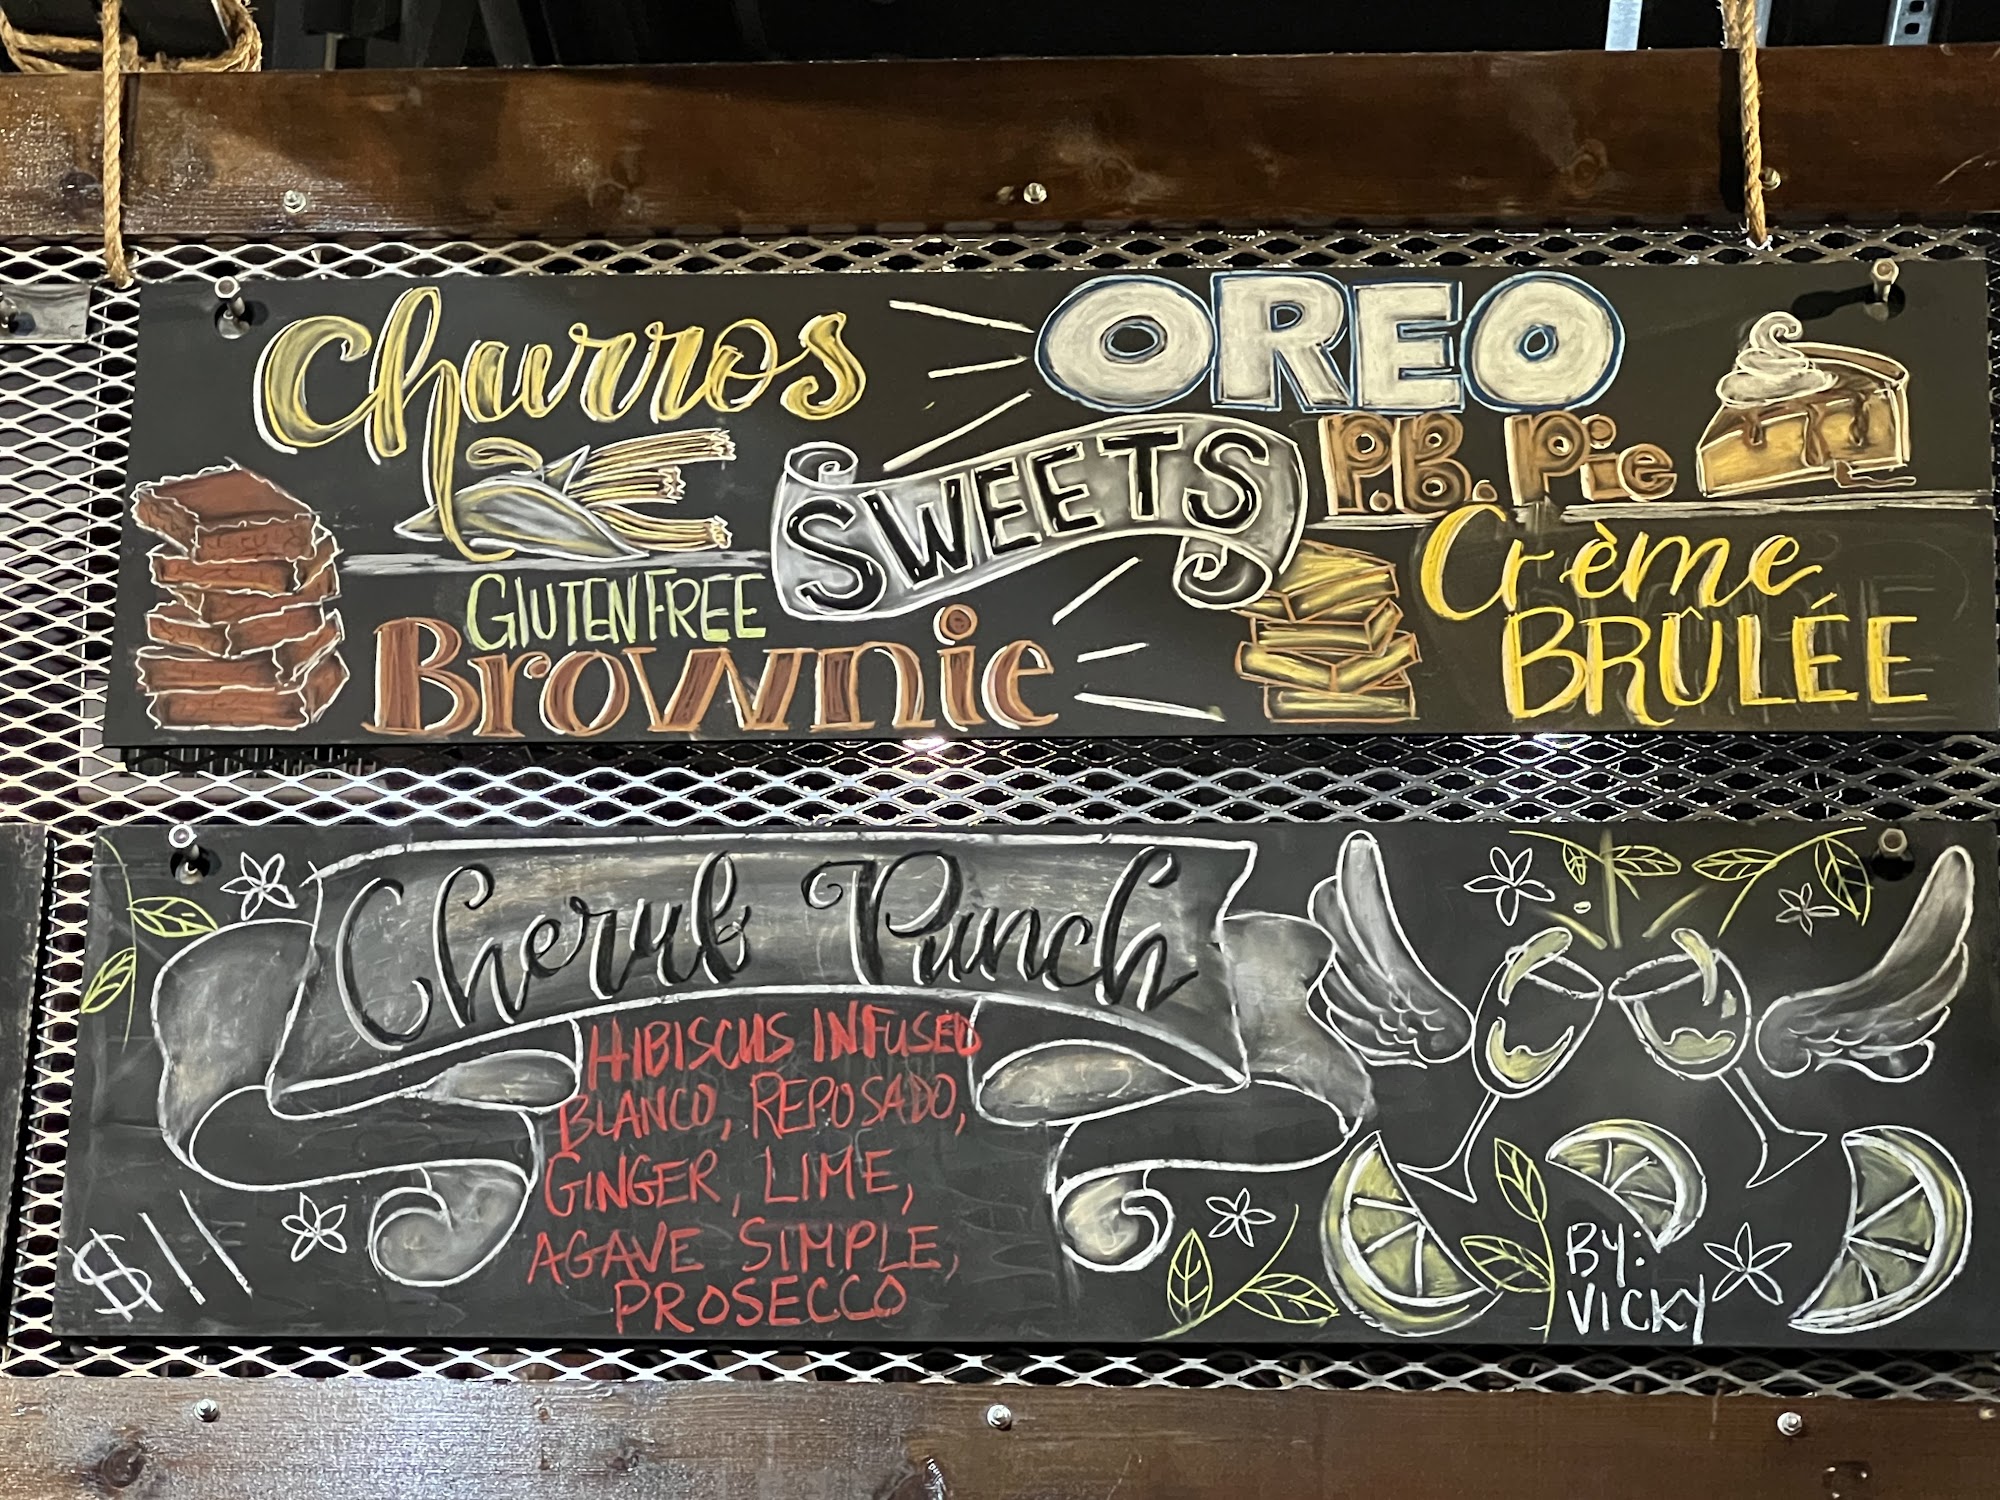 Churros
OREO
P.B. Pie
SWEETS
GLUTEN FREE
Brownie
Crème
BRÛLÉE
Cherub Punch
HIBISCUS INFUSED
BLANCO, REPOSADO,
GINGER, LIME,
AGAVE SIMPLE,
PROSECCO
$11
BY:
VICKY